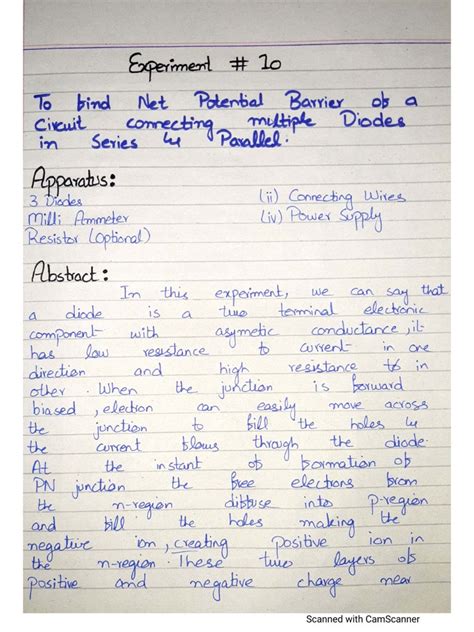 Experiment # 10
To find Net Potential Barrier of a
Circuit connecting multiple Diodes
in Series & Parallel.
Apparatus:
3 Diodes (ii) Connecting Wires
Milli Ammeter (iv) Power Supply
Resistor (Optional)
Abstract:
In this experiment, we can say that
a diode is a two terminal electronic
component with asymetic conductance, it
has low resistance to current in one
direction and high resistance in
other. When the junction is forward
biased, electron can easily move across
the junction to fill the holes &
the current flows through the diode.
At the instant of formation of
PN junction the free elections from
the n-region diffuse into p-region
and fill the holes making the
negative ion, creating positive ion in
the n-region. These two layers of
positive and negative charge near
Scanned with CamScanner